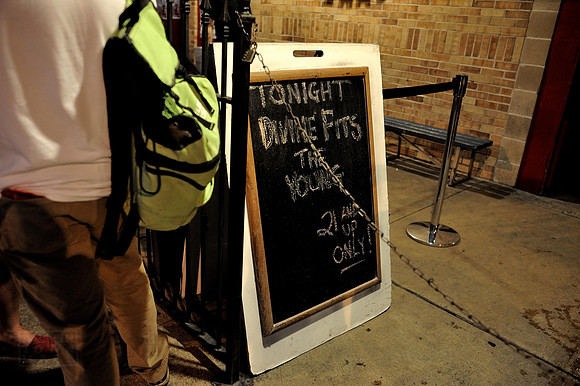 TONIGHT
DIVINE FITS
THE
YOUNG
21 AND
UP
ONLY!